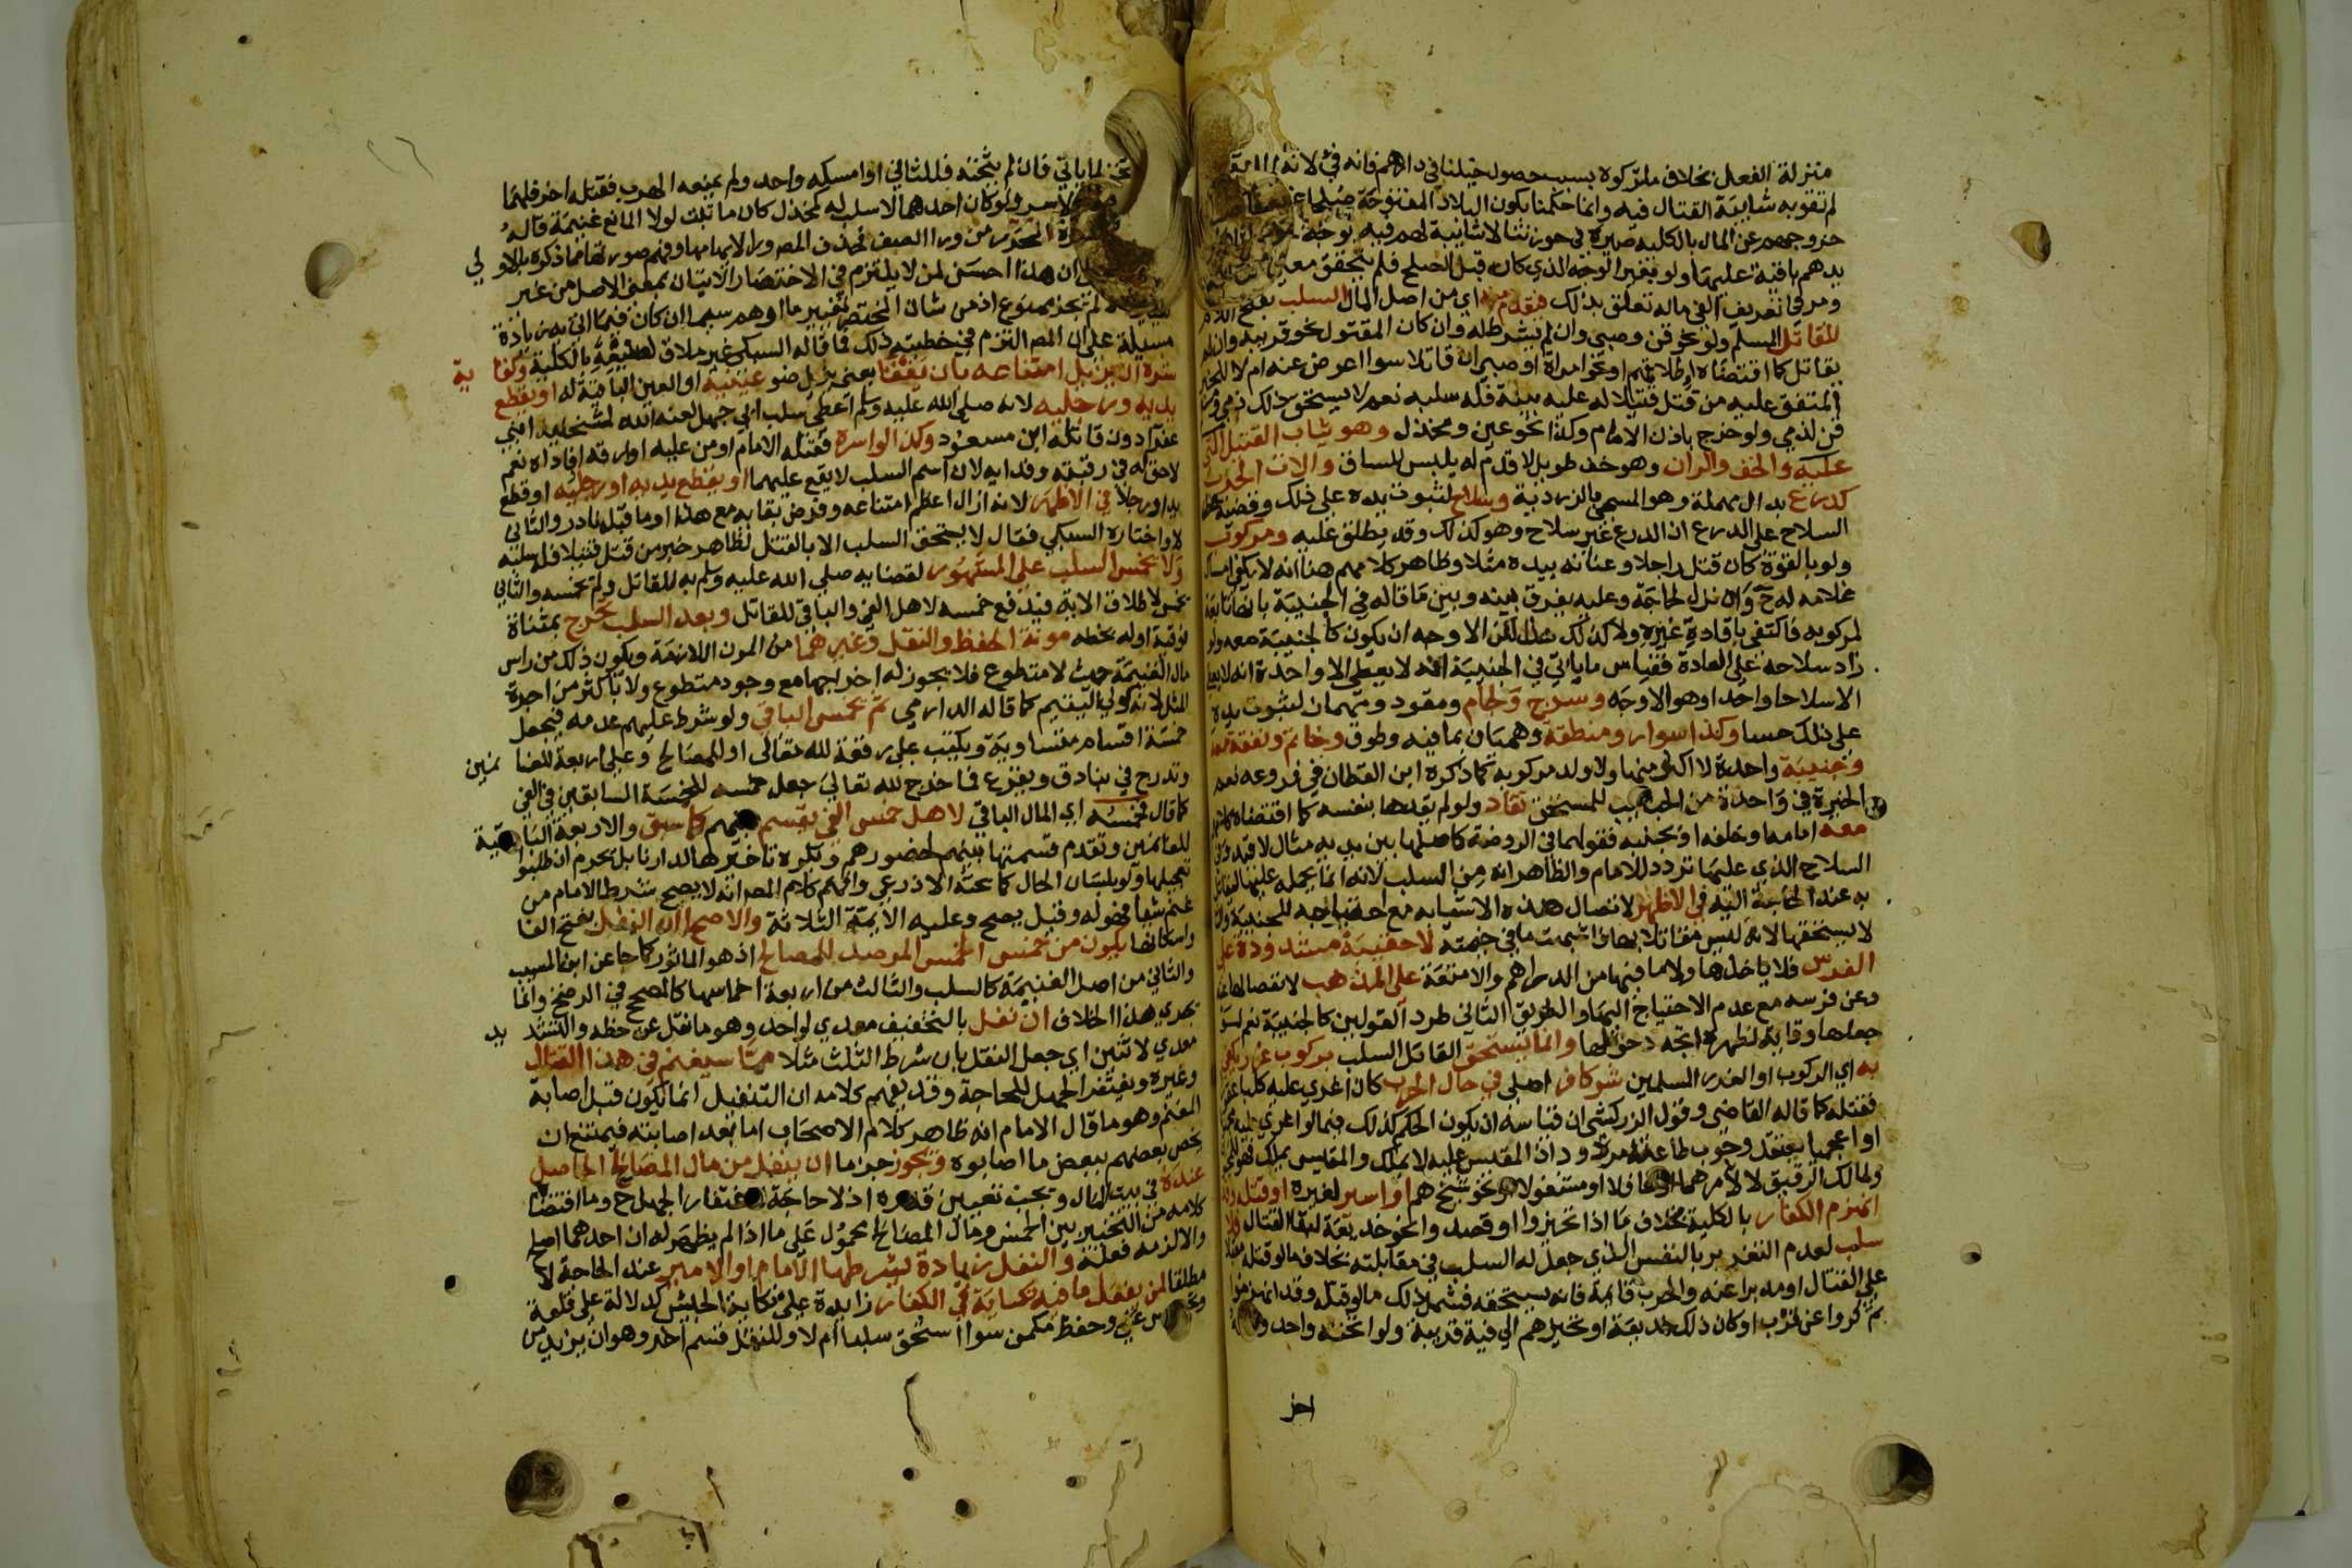 منزلة الفعل بخلاف ما تركوه بسبب حصول خيلنا في دارهم فانه في لانه
لم تقو به شايبة القتال فيه وانما حكمنا بكون البلاد المفتوحة صلحا
خروجهم عن المال بالكليه صيره في حوزتنا لا شايبة لهم فيه بوجه
يدهم باقية عليها ولو بغير الوجه الذي كان قبل الصلح فلم يتحقق معنى
ومر في تعريف الفي ماله تعلق بذلك فيقدم منه اي من اصل المال السلب بفتح اللام
للقاتل المسلم ولو نحو قن وصبي وان لم يشرط له وان كان المقتول نحو قريبه وان لم
يقاتل كما اقتضاه اطلاقهم او نحو امراة او صبي ان قاتلا سوا اعرض عنه ام لا للخبر
المتفق عليه من قتل قتيلا له عليه بينة فله سلبه نعم لا يستحق ذلك ذمي
قن لذمي ولو خرج باذن الامام وكذا نحو عين ومخذل وهو ثياب القتيل التي
عليه والخف والران وهو خف طويل لا قدم له يلبس للساق والات الحرب
كدرع بدال مهملة وهو المسمى بالزردية وسلاح لثبوت يده على ذلك وقضية
السلاح على الدرع ان الدرع غير سلاح وهو كذلك وقد يطلق عليه ومركوب
ولو بالقوة كان قتل راجلا وعنانه بيده مثلا وظاهر كلامهم هنا انه لا يكفي امساك
غلامه له ح وان نزل لحاجة وعليه يفرق بينه وبين ما قاله في الجنيبة بانها تابعة
لمركوبه فاكتفي بقيادة غيره ولا كذلك هذا لكن الاوجه ان يكون كالجنيبة معه ولو
زاد سلاحه على العادة فقياس ما ياتي في الجنيبة انه لا يعطى الا واحدة انه لا يعطى
الا سلاحا واحدا وهو الاوجه وسرج ولجام ومقود ومهماز لثبوت يده
على ذلك حسا وكذا سوار ومنطقة وهميان بما فيه وطوق وخاتم ونفقة معه
وجنيبة واحدة لا اكثر منها ولا ولد مركوبه كما ذكره ابن القطان في فروعه نعم
الخيرة في واحدة من الجنايب للمستحق تقاد ولو لم يقدها بنفسه كما اقتضاه كلامهم
معه امامه او خلفه او بجنبه فقولهما في الروضة كاصلها بين يديه مثال لا قيد وفي
السلاح الذي عليها تردد للامام والظاهر انه من السلب لانه انما يحمله عليها ليقاتل
به عند الحاجة اليه في الاظهر لاتصال هذه الاشيا به مع احتياجه للجنيبة
لا يستحقها لانه ليس مقاتلا بها لا حقيبة مشدودة على
الفرس فلا ياخذها ولا ما فيها من الدراهم والامتعة على المذهب لانفصالها عنه
وعن فرسه مع عدم الاحتياج اليها والطريق الثاني طرد القولين كالجنيبة نعم لو
جعلها وقاية لظهره اتجه دخولها وانما يستحق القاتل السلب بركوب غرر يكفي
به اي الركوب او الغرر المسلمين شر كافر اصلي في حال الحرب كان اغرى عليه كلبا عقورا
فقتله كما قاله القاضي وقول الزركشي ان قياسه ان يكون الحكم كذلك فيما لو اغرى عليه مجنونا
او اعجميا يعتقد وجوب طاعة امره ود اذ المقيس عليه لا يملك والمقيس يملك فهو للمجنون
ولمالك الرقيق لا لامرهما او مشغولا او نحو شيخ هم او اسير لغيره او قتله وقد
انهزم الكفار بالكلية بخلاف ما اذا تحيزوا او قصدوا نحو خديعة لبقا القتال فلا
سلب لعدم التغرير بالنفس الذي جعل له السلب في مقابلته بخلاف ما لو قتله مقبلا
على القتال او مدبرا عنه والحرب قائمة فانه يستحقه فشمل ذلك ما لو قتله وقد انهزموا
ثم كروا عن قرب او كان ذلك خديعة او تحيزهم الى فية قريبة ولو اثخنه واحد
اخر
لما ياتي فان لم يثخنه فللثاني او امسكه واحد ولم يمنعه الهرب فقتله اخر فلهما
ولو كان احدهما لا سلب له كمخذل كان ما ثبت لولا المانع غنيمة قاله
المحرر من ورا الصف فحذف المصـ ورا لايهامها وفهم صورتها مما ذكره بالاولى
ان هذا احسن لمن لا يلتزم في الاختصار الاتيان بمعنى الاصل من غير
ممنوع اذ من شان المختصر تغيير ما اوهم سيما ان كان فيما اتى به زيادة
مسيلة على ان المصـ التزم في خطبته ذلك فما قاله السبكي غير ملاق لصنيعه بالكلية وكفاية
شره ان يزيل امتناعه بان يفقأ بعني يزيل ضو عينيه او العين الباقية له او يقطع
يديه ورجليه لانه صلى الله عليه وسلم اعطى سلب ابي جهل لعنه الله لمثخنيه ابني
عفرا دون قاتله ابن مسعود وكذا لو اسره فقتله الامام او من عليه او ارقه او فاداه نعم
لا حق له في رقبته وفدايه لان اسم السلب لا يقع عليهما او يقطع يديه او رجليه او قطع
يدا ورجلا في الاظهر لانه ازال اعظم امتناعه وفرض بقايه مع هذا او ما قبله نادر والثاني
لا واختاره السبكي فقال لا يستحق السلب الا بالقتل لظاهر خبر من قتل قتيلا فله سلبه
ولا يخمس السلب على المشهور لقضايه صلى الله عليه وسلم به للقاتل ولم يخمسه والثاني
يخمس لاطلاق الاية فيدفع خمسه لاهل الفي والباقي للقاتل وبعد السلب تخرج بمثناة
فوقية اوله بخطه مونة الحفظ والنقل وغيرهما من المون اللازمة ويكون ذلك من راس
مال الغنيمة حيث لا متطوع فلا يجوز له اخراجها مع وجود متطوع ولا باكثر من اجرة
المثل لانه كولي اليتيم كما قاله الدارمي ثم يخمس الباقي ولو شرط عليهم عدمه فيجعل
خمسة اقسام متساوية ويكتب على رقعة لله تعالى او للمصالح وعلى اربعة للغانمين
وتدرج في بنادق ويقرع فما خرج لله تعالى جعل خمسه للخمسة السابقين في الفي
كما قال فخمسه اي المال الباقي لاهل خمس الفي يقسم بينهم كما سبق والاربعة الباقية
للغانمين وتقدم قسمتها بينهم لحضورهم ويكره تاخيرها لدارنا بل يحرم ان طلبوا
تعجيلها ولو بلسان الحال كما بحثه الاذرعي وافهم كلام المصـ انه لا يصح شرط الامام من
غنم شيا فهو له وقيل يصح وعليه الايمة الثلاثة والاصح ان النفل بفتح الفا
واسكانها يكون من خمس الخمس المرصد للمصالح اذ هو الماثور كما جا عن ابن المسيب
والثاني من اصل الغنيمة كالسلب والثالث من اربعة اخماسها كالمصحح في الرضخ وانما
يجري هذا الخلاف ان نفل بالتخفيف معدي لواحد وهو ما نقل عن خطه والتشديد
معدي لاثنين اي جعل النفل بان شرط الثلث مثلا مما سيغنم في هذا القتال
وغيره ويغتفر الجهل للحاجة وقد يفهم كلامه ان التنفيل انما يكون قبل اصابة
المغنم وهو ما قال الامام انه ظاهر كلام الاصحاب اما بعد اصابته فيمتنع ان
يخص بعضهم ببعض ما اصابوه ويجوز جزما ان ينفل من مال المصالح الحاصل
عنده في بيت المال ويجب تعيين قدره اذ لا حاجة لاغتفار الجهل ح وما اقتضاه
كلامه من التخيير بين الخمس ومال المصالح محمول على ما اذا لم يظهر له ان احدهما اصلح
والا لزمه فعله والنفل زيادة يشرطها الامام او الامير عند الحاجة لا
مطلقا لمن يفعل ما فيه نكاية في الكفار زايدة على نكاية الجيش كدلالة على قلعة
وحفظ مكمن سوا استحق سلبا ام لا وللنفل قسم اخر وهو ان يزيد من